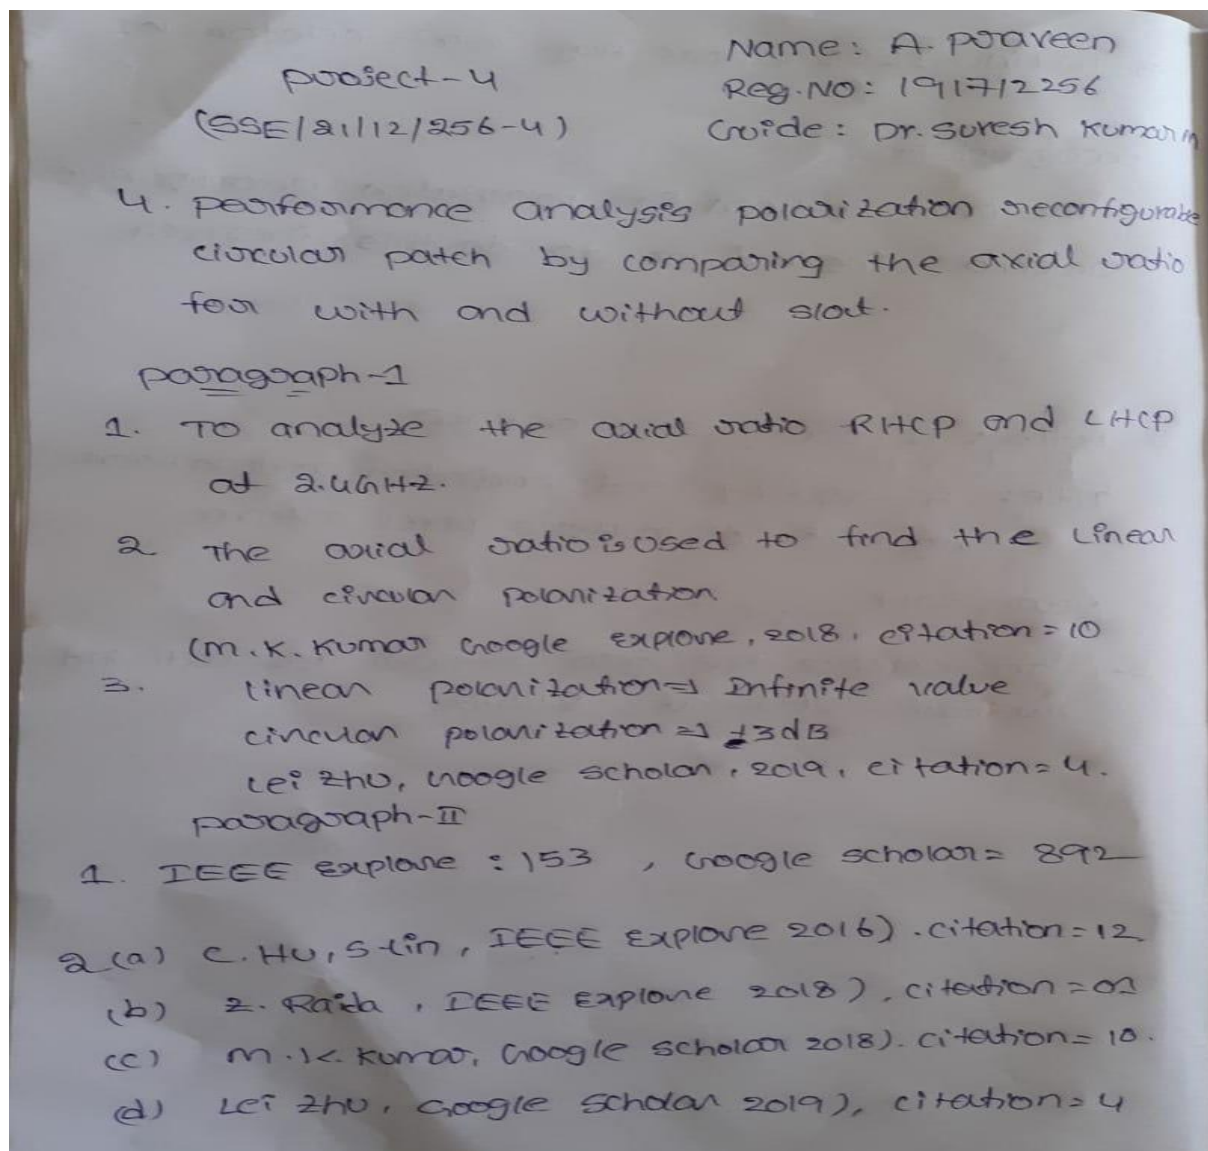 Name: A. Praveen
Project-4
Reg.No: 191712256
(SSE/21/12/256-4)
Guide: Dr. Suresh Kumar M
4. performance analysis polarization reconfigurable
circular patch by comparing the axial ratio
for with and without slot.
paragraph-1
1. To analyze the axial ratio RHCP and LHCP
at 2.4GHZ.
2 The axial ratio is used to find the Linear
and circular polarization
(M.K. Kumar Google explore, 2018. citation=10
3. linear polarization⇒ Infinite value
circular polarization ⇒ ±3dB
Lei Zhu, Google scholar, 2019, citation=4.
paragraph-II
1. IEEE Explore : 153 , Google scholar= 892
2(a) C. Hu, S Lin, IEEE Explore 2016). citation=12
(b) Z. Raida, IEEE Explore 2018), citation=
(c) M.K Kumar, Google scholar 2018). citation= 10.
(d) Lei Zhu, Google scholar 2019), citation=4